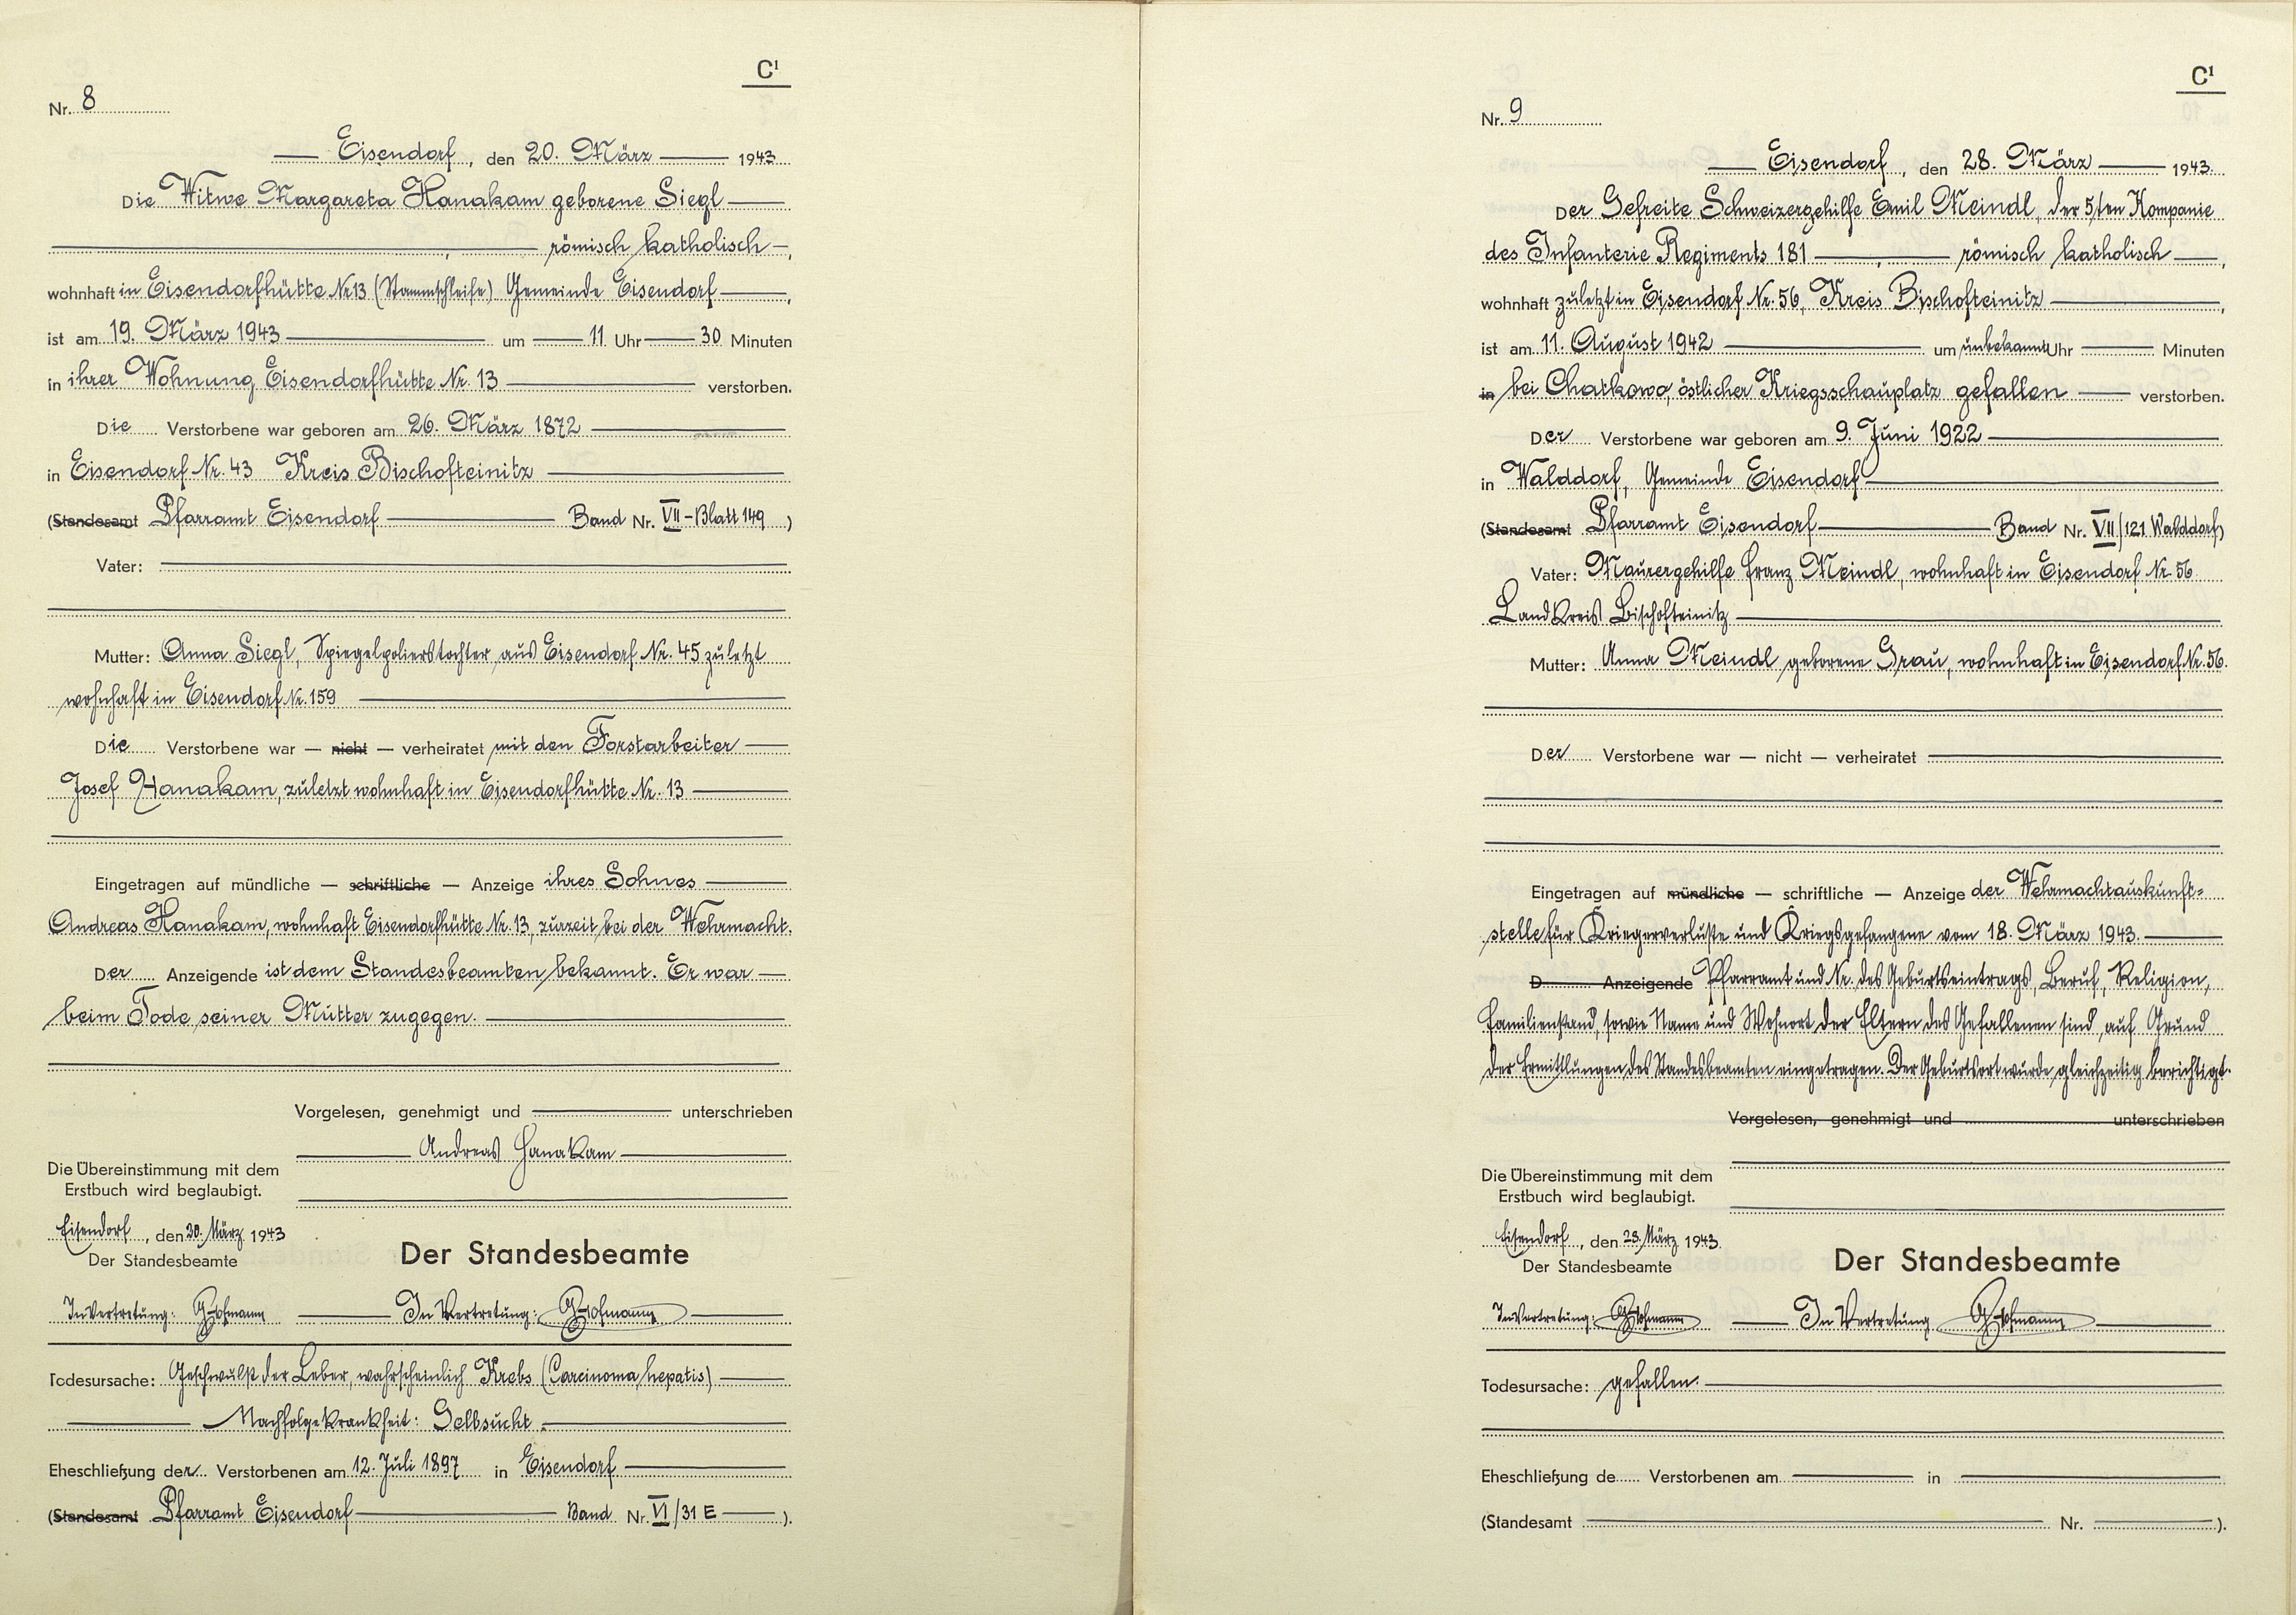 C¹
Nr. 8
Eisendorf, den 20. März 1943
Die Witwe Margareta Hanakam geborene Siegl
, römisch katholisch,
wohnhaft in Eisendorfhütte Nr 13 (Stammschleife) Gemeinde Eisendorf,
ist am 19. März 1943 um 11 Uhr 30 Minuten
in ihrer Wohnung Eisendorfhütte Nr. 13 verstorben.
Die Verstorbene war geboren am 26. März 1872
in Eisendorf Nr. 43 Kreis Bischofteinitz
(Standesamt Pfarramt Eisendorf Band Nr. VII - Blatt 149)
Vater:
Mutter: Anna Siegl, Spiegelpolierstochter aus Eisendorf Nr. 45 zuletzt
wohnhaft in Eisendorf Nr. 159
Die Verstorbene war — nicht — verheiratet mit den Forstarbeiter
Josef Hanakam, zuletzt wohnhaft in Eisendorfhütte Nr. 13
Eingetragen auf mündliche — schriftliche — Anzeige ihres Sohnes
Andreas Hanakam, wohnhaft Eisendorfhütte Nr. 13, zurzeit bei der Wehrmacht.
Der Anzeigende ist dem Standesbeamten bekannt. Er war
beim Tode seiner Mutter zugegen.
Vorgelesen, genehmigt und unterschrieben
Andreas Hanakam
Die Übereinstimmung mit dem
Erstbuch wird beglaubigt.
Eisendorf, den 20. März 1943
Der Standesbeamte
Der Standesbeamte
In Vertretung: G Hofmann
In Vertretung: G Hofmann
Todesursache: Geschwulst der Leber, wahrscheinlich Krebs (Carcinoma hepatis)
Nachfolgekrankheit: Gelbsucht.
Eheschließung der Verstorbenen am 12. Juli 1897 in Eisendorf
(Standesamt Pfarramt Eisendorf Band Nr. VI/31 E).
C¹
Nr. 9
Eisendorf, den 28. März 1943.
Der Gefreite Schweizergehilfe Emil Meindl, der 5/ten Kompanie
des Infanterie Regiments 181, römisch katholisch,
wohnhaft zuletzt in Eisendorf Nr. 56, Kreis Bischofteinitz,
ist am 11. August 1942 um unbekannt Uhr Minuten
in bei Chatkowo, östlicher Kriegsschauplatz gefallen verstorben.
Der Verstorbene war geboren am 9. Juni 1922
in Walddorf, Gemeinde Eisendorf
(Standesamt Pfarramt Eisendorf Band Nr. VII/121 Walddorf)
Vater: Maurergehilfe Franz Meindl, wohnhaft in Eisendorf Nr. 56
Landkreis Bischofteinitz
Mutter: Anna Meindl geborene Grau, wohnhaft in Eisendorf Nr. 56.
Der Verstorbene war — nicht — verheiratet
Eingetragen auf mündliche — schriftliche — Anzeige der Wehrmachtauskunft=
stelle für Kriegerverluste und Kriegsgefangene vom 18. März 1943.
D Anzeigende Pfarramt und Nr. des Geburtseintrags, Beruf, Religion,
Familienstand, sowie Name und Wohnort der Eltern des Gefallenen sind, auf Grund
der Ermittlungen des Standesbeamten eingetragen. Der Geburtsort wurde gleichzeitig berichtigt.
Vorgelesen, genehmigt und unterschrieben
Die Übereinstimmung mit dem
Erstbuch wird beglaubigt.
Eisendorf, den 28. März 1943.
Der Standesbeamte
Der Standesbeamte
In Vertretung: G Hofmann
In Vertretung G Hofmann
Todesursache: gefallen.
Eheschließung de Verstorbenen am in
(Standesamt Nr. ).